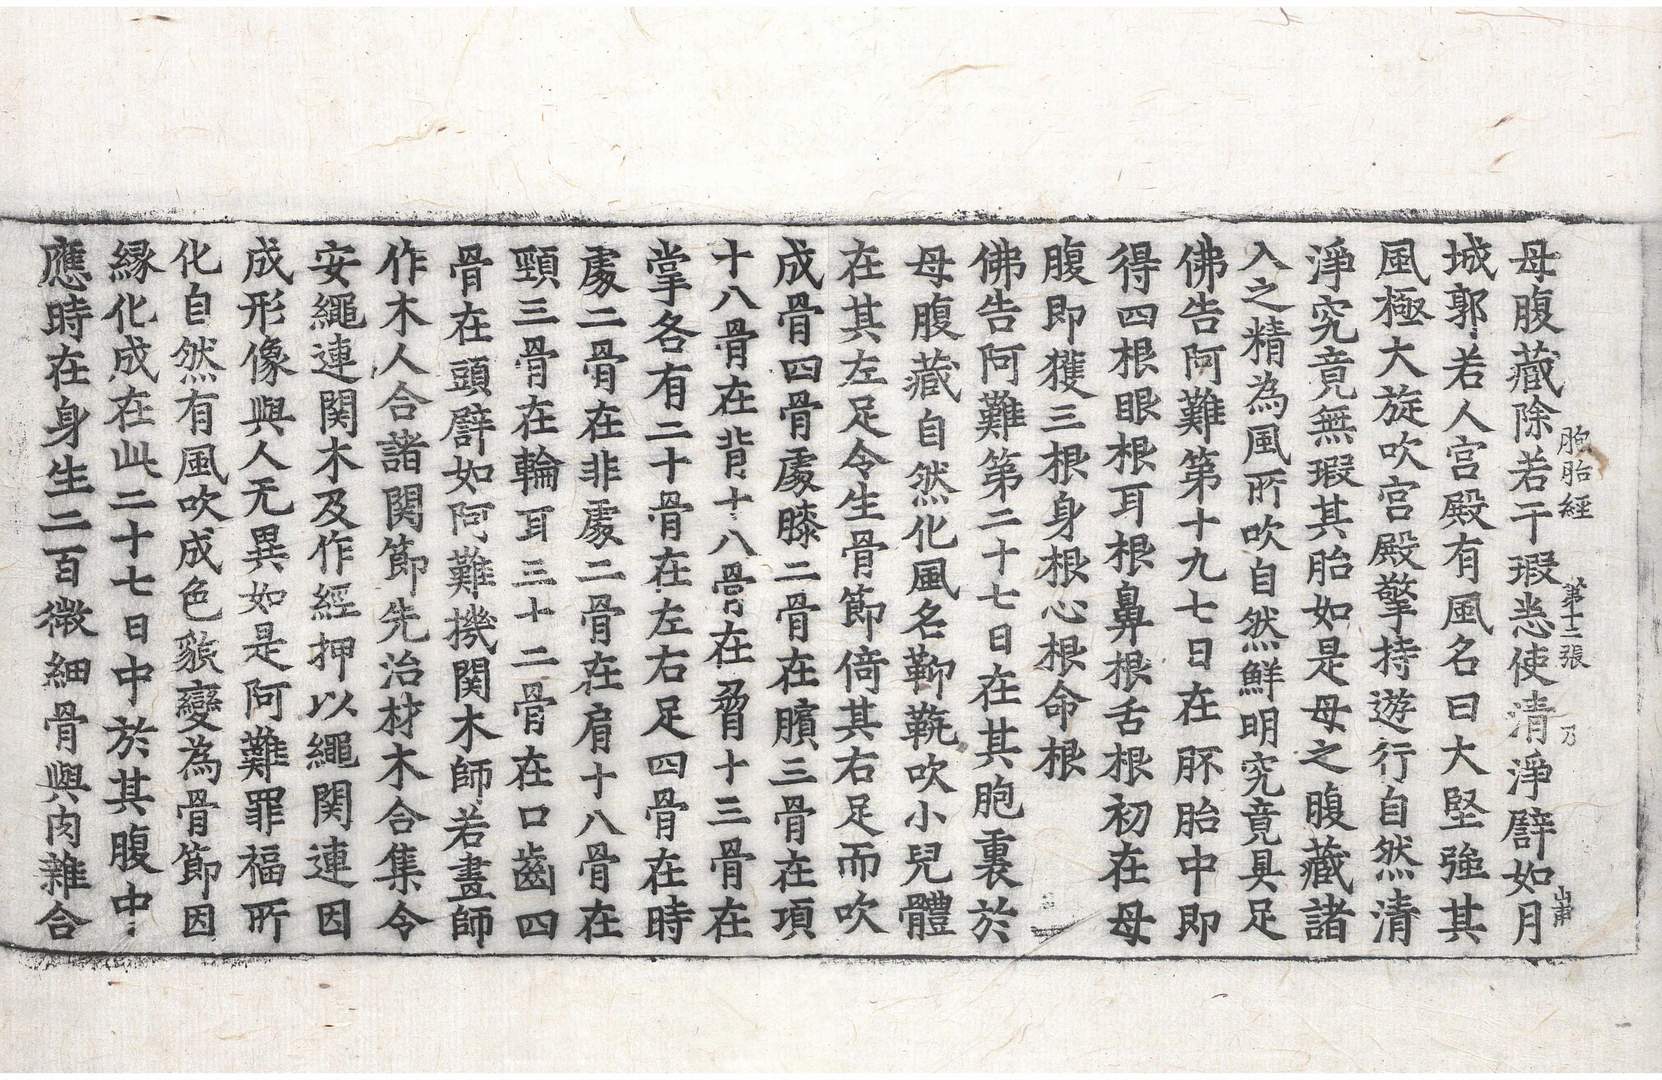 胞胎經 第十二張 乃 出庫
母腹藏除若干瑕惡使清淨譬如月
城郭若人宮殿有風名曰大堅強其
風極大旋吹宮殿擎持遊行自然清
淨究竟無瑕其胎如是母之腹藏諸
入之精為風所吹自然鮮明究竟具足
佛告阿難第十九七日在胚胎中即
得四根眼根耳根鼻根舌根初在母
腹即獲三根身根心根命根
佛告阿難第二十七日在其胞裏於
母腹藏自然化風名鞞鞔吹小兒體
在其左足令生骨節倚其右足而吹
成骨四骨處膝二骨在臏三骨在項
十八骨在背十八骨在脅十三骨在
掌各有二十骨在左右足四骨在時
處二骨在非處二骨在肩十八骨在
頸三骨在輪耳三十二骨在口齒四
骨在頭譬如阿難機関木師若畫師
作木人合諸関節先治材木合集令
安繩連関木及作經押以繩関連因
成形像與人无異如是阿難罪福所
化自然有風吹成色貌變為骨節因
緣化成在此二十七日中於其腹中
應時在身生二百微細骨與肉雜合